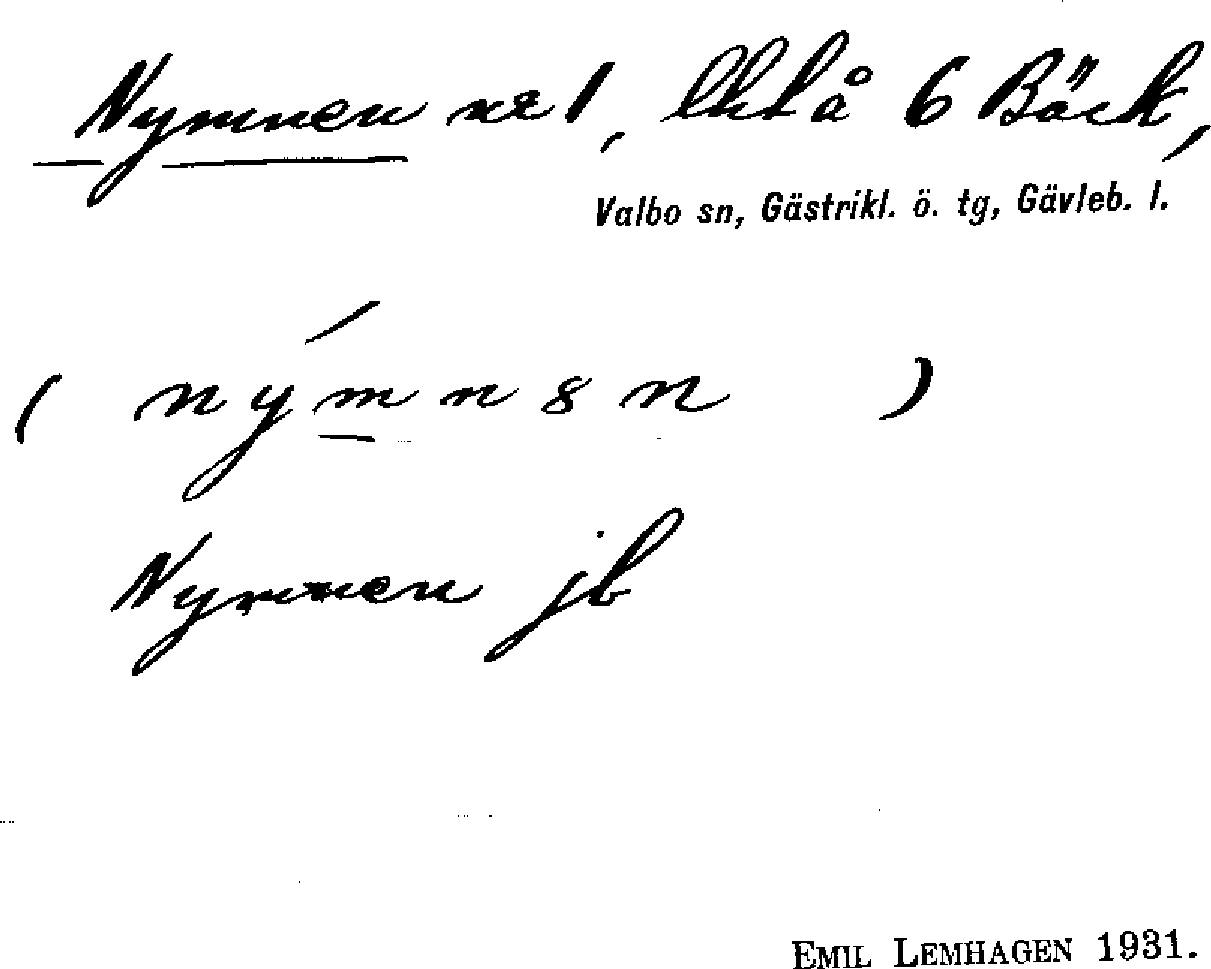 Nymnen nr 1, lht å 6 Bäck,
Valbo sn, Gästrikl. ö. tg, Gävleb. l.
( nýmnsn )
Nymnen jb
EMIL LEMHAGEN 1931.